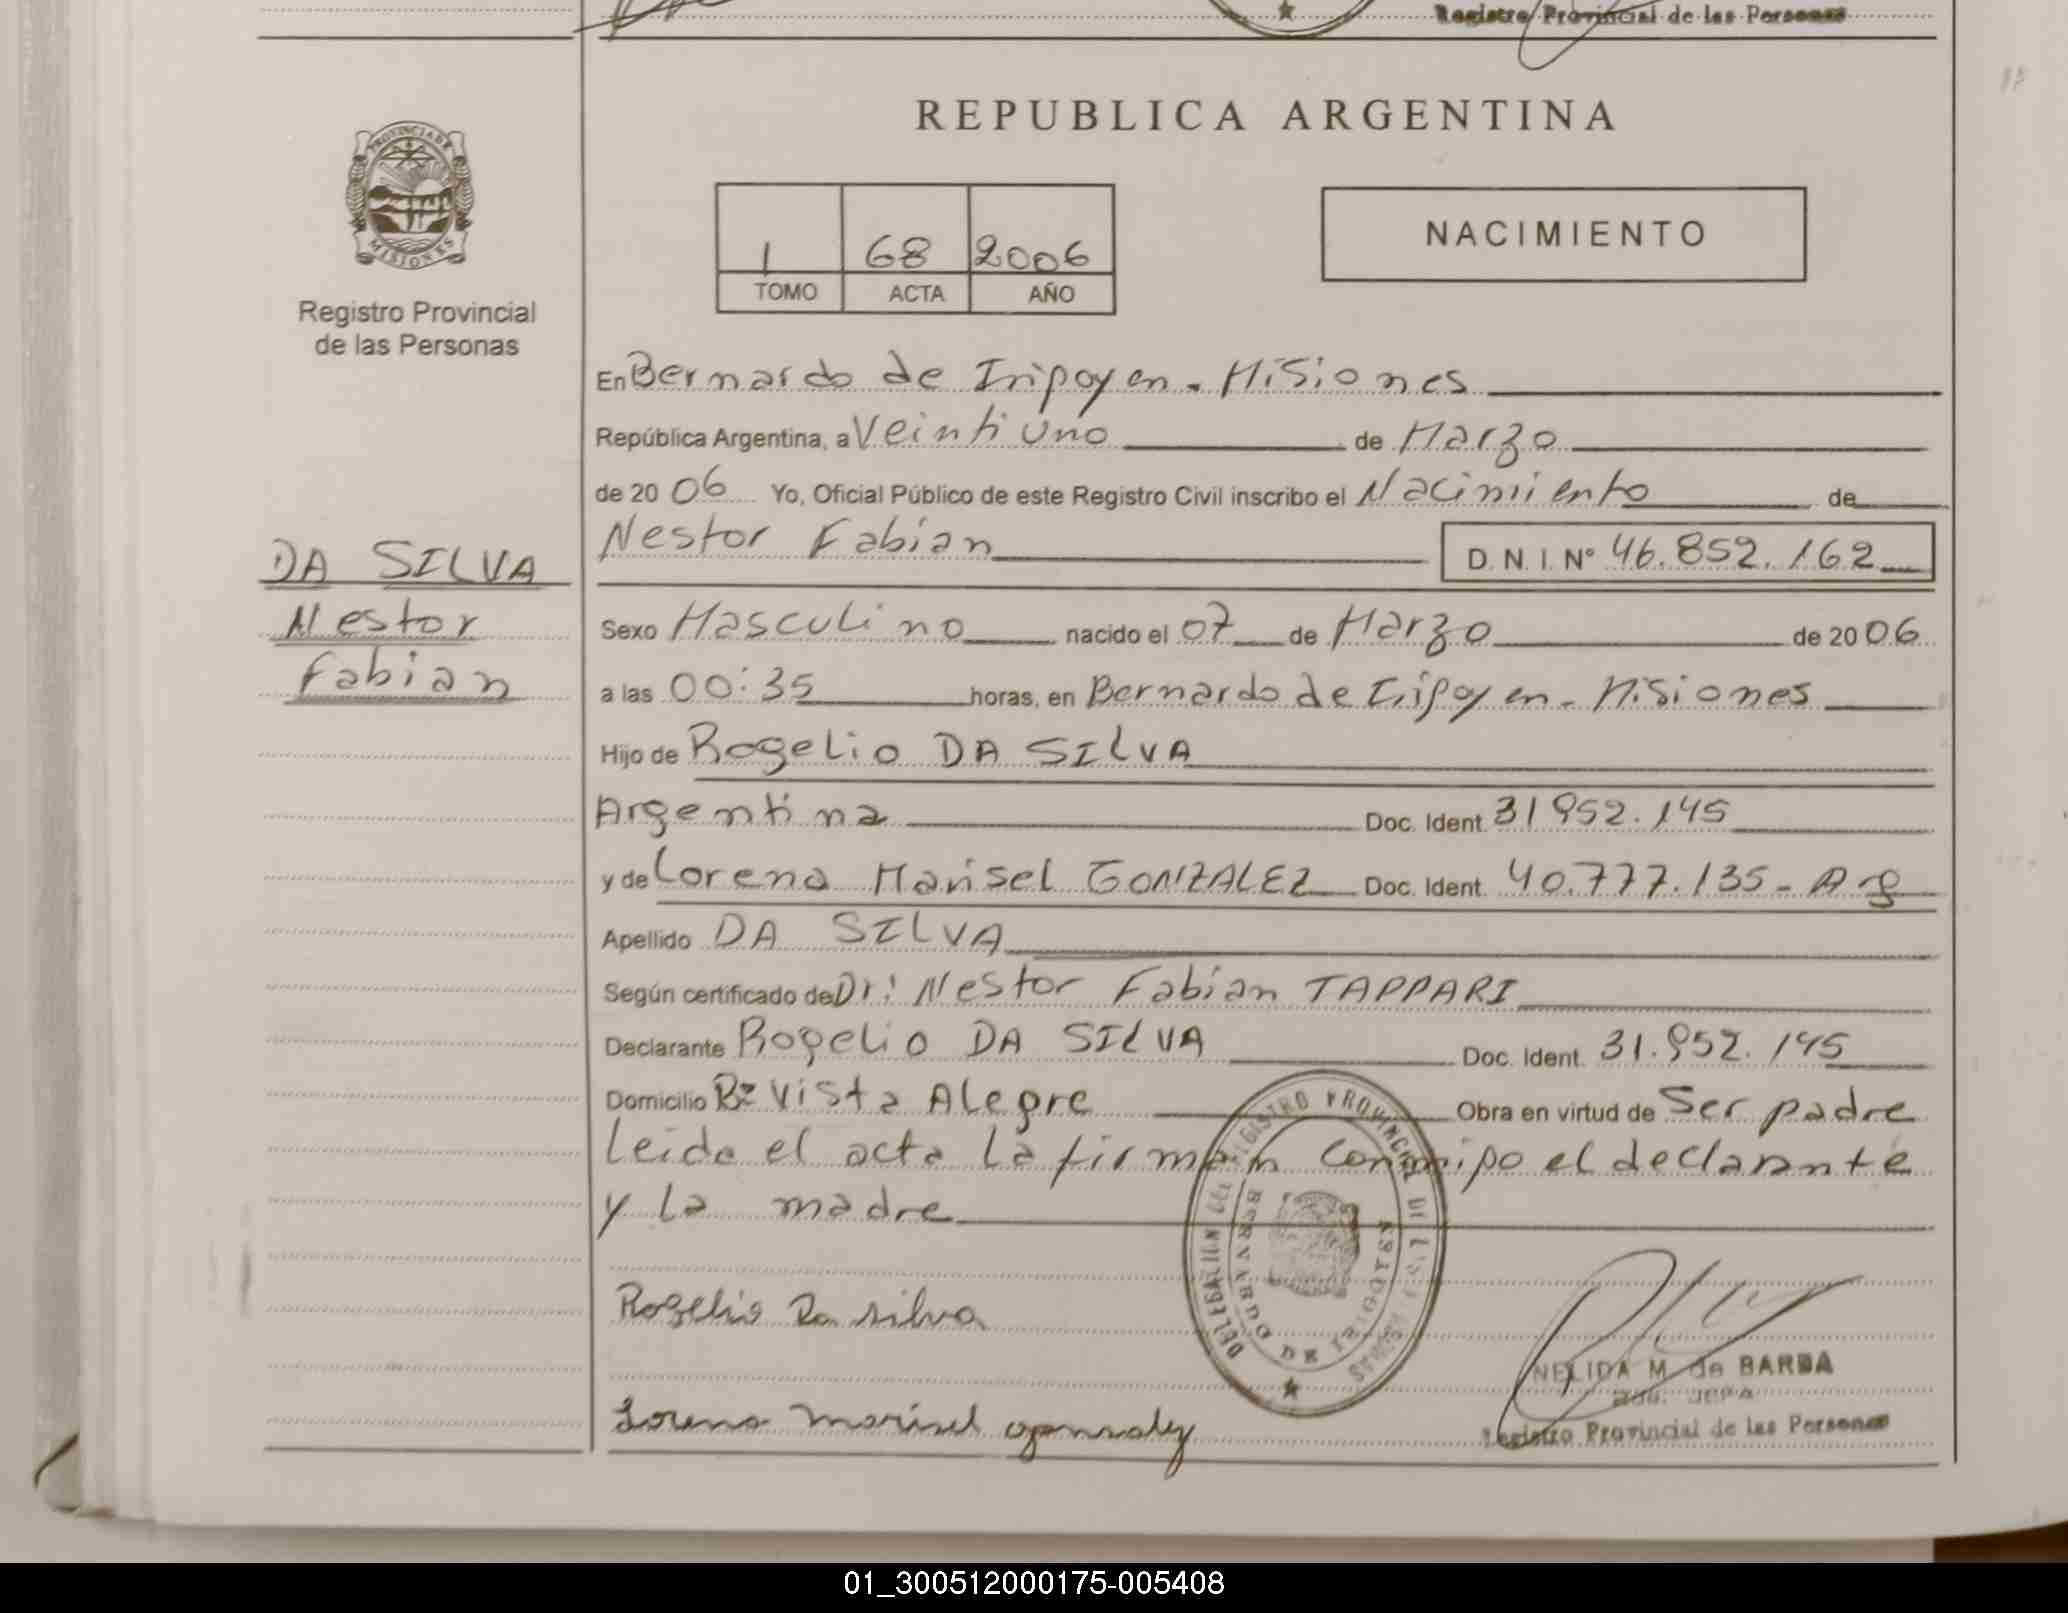 Registro Provincial de las Personas
REPUBLICA ARGENTINA
PROVINCIA DE
MISIONES
Registro Provincial
de las Personas
1 68 2006
TOMO ACTA AÑO
NACIMIENTO
En Bernardo de Irigoyen - Misiones
República Argentina, a Veintiuno de Marzo
de 2006 Yo, Oficial Público de este Registro Civil inscribo el Nacimiento de
DA SILVA
Nestor
Fabian
Nestor Fabian D. N. I. Nº 46.852.162
Sexo Masculino nacido el 07 de Marzo de 2006
a las 00:35 horas, en Bernardo de Irigoyen - Misiones
Hijo de Rogelio DA SILVA
Argentina Doc. Ident. 31952.145
y de Lorena Marisel GONZALEZ Doc. Ident. 40.777.135 - Arg
Apellido DA SILVA
Según certificado de Dr: Nestor Fabian TAPPARI
Declarante Rogelio DA SILVA Doc. Ident. 31.952.145
Domicilio Bº Vista Alegre Obra en virtud de Ser padre
Leida el acta la firman conmigo el declarante
y la madre
DELEGACIÓN DEL REGISTRO PROVINCIAL DE LAS PERSONAS
BERNARDO DE IRIGOYEN
Rogelio Da silva
Lorena Marisel gonzalez
NELIDA M. de BARBA
Registro Provincial de las Personas
01_300512000175-005408